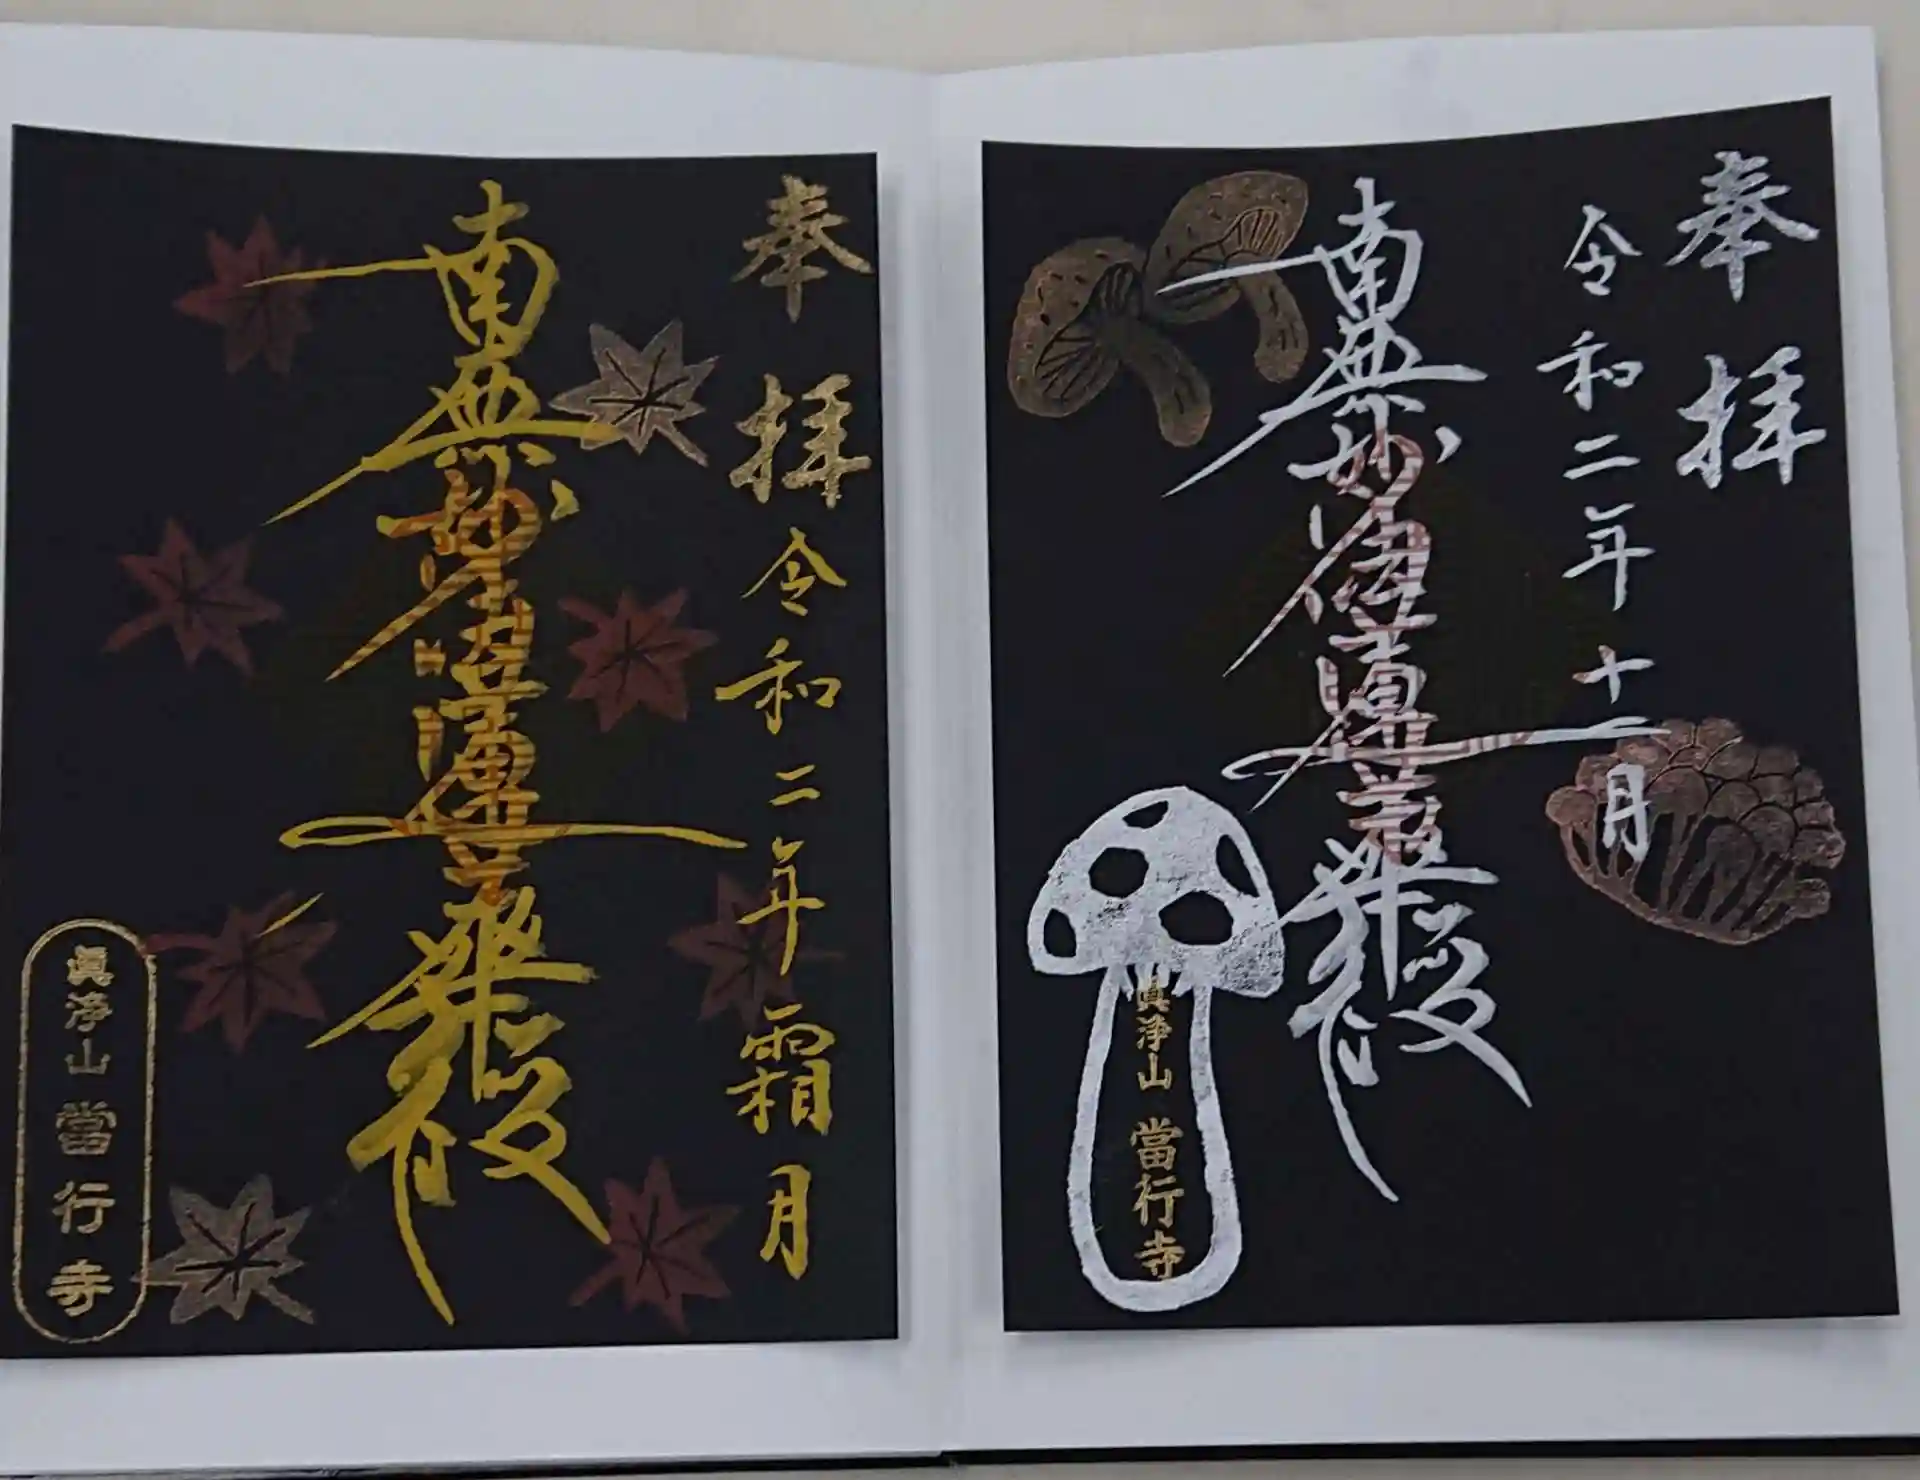 奉拝
令和二年十一月
南無妙法蓮華経
眞浄山 當行寺
奉拝
令和二年霜月
南無妙法蓮華経
眞浄山 當行寺